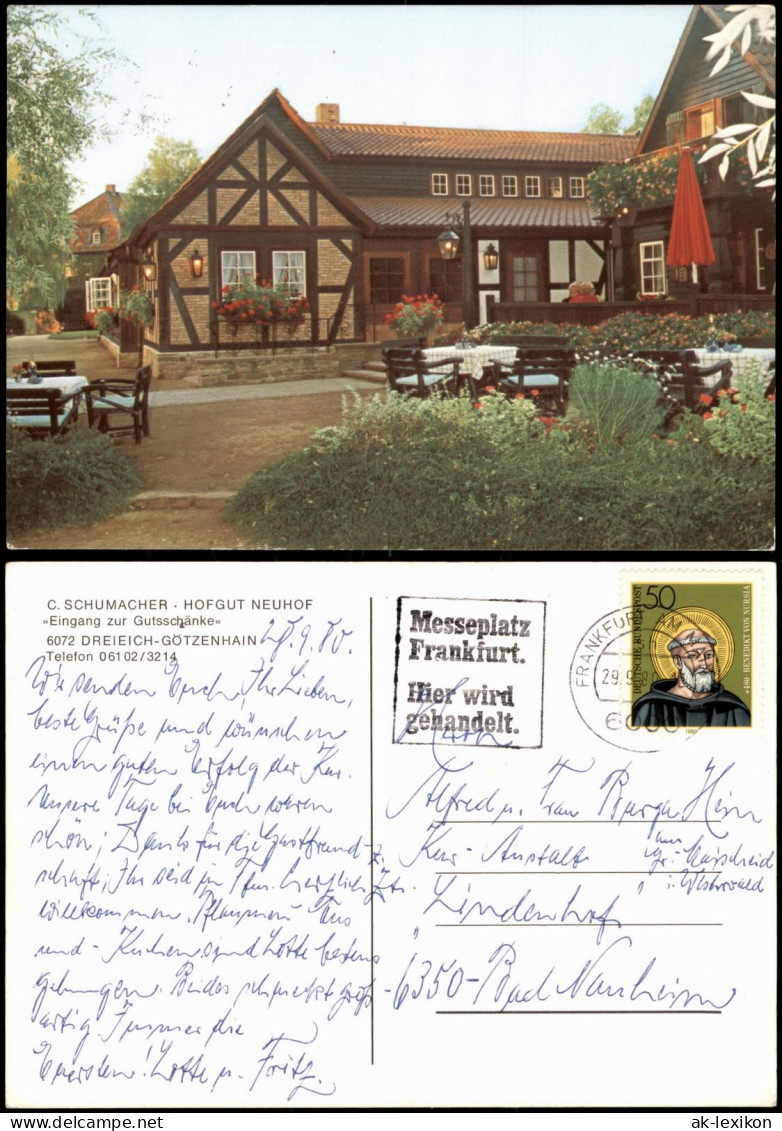 C. SCHUMACHER · HOFGUT NEUHOF
»Eingang zur Gutsschänke«
6072 DREIEICH-GÖTZENHAIN
Telefon 06102/3214
28.9.80.
Wir senden Euch, Ihr Lieben,
beste Grüße und wünschen
einen guten Erfolg der Kur.
Unsere Tage bei Euch waren
schön; Dank für die Gastfreund-
schaft; Ihr seid in Ffm. herzlich
willkommen. Pflaumen Mus
und - Kuchen sind Lotte bestens
gelungen. Beides schmeckt groß-
artig. Immer die
Euersten! Lotte u. Fritz.
Messeplatz
Frankfurt.
Hier wird
gehandelt.
FRANKFURT AM
29.9.8
6000
50
DEUTSCHE BUNDESPOST
*480 · BENEDIKT VON NURSIA
1980
Herrn
Alfred u. Frau
z. Zt.
Kur-Anstalt
"Lindenhof"
6350-Bad Nauheim
aus
i. Westerwald
ak-lexikon